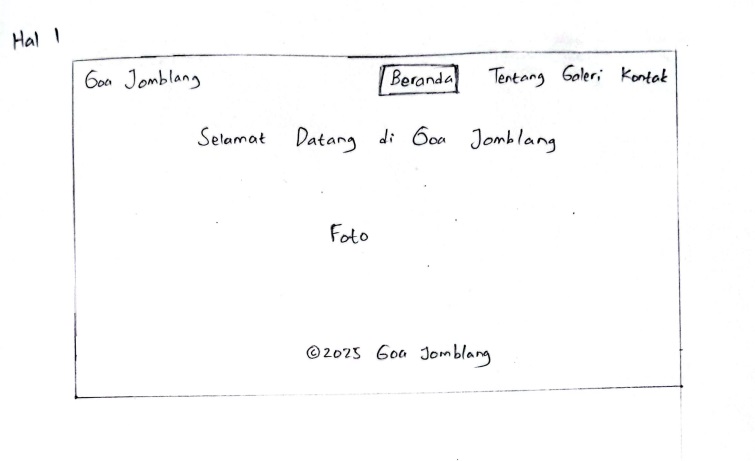 Hal 1
Goa Jomblang Beranda Tentang Galeri Kontak
Selamat Datang di Goa Jomblang
Foto
©2025 Goa Jomblang